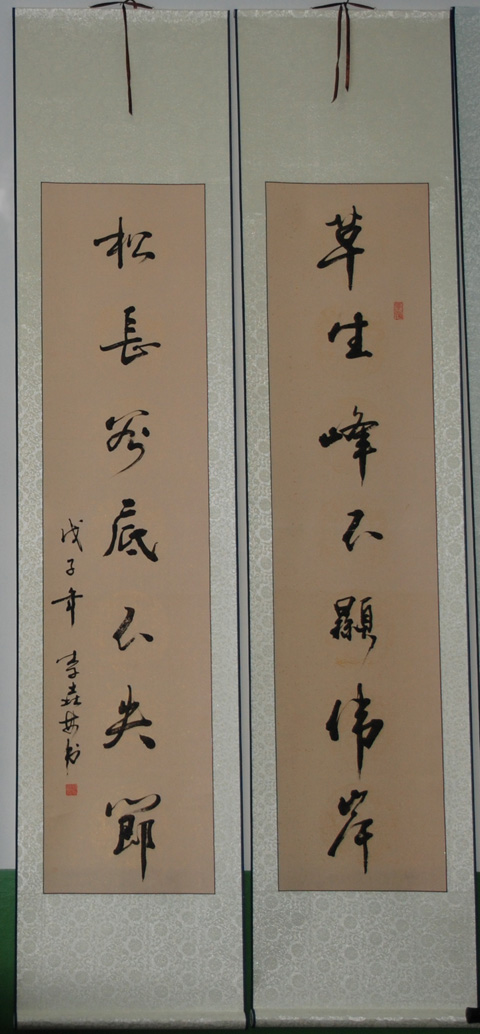 草生峰不顯伟岸
松長谷底不失節
戊子年
李 书